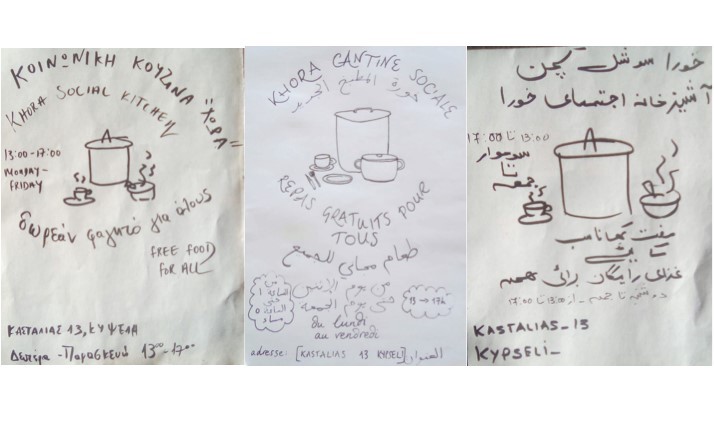 ΚΟΙΝΩΝΙΚΗ ΚΟΥΖΙΝΑ "ΧΩΡΑ"
KHORA SOCIAL KITCHEN
13:00-17:00
MONDAY-
FRIDAY
δωρεάν φαγητό για όλους
FREE FOOD
FOR ALL
ΚΑΣΤΑΛΙΑΣ 13, ΚΥΨΕΛΗ
Δευτέρα - Παρασκευή 13⁰⁰-17⁰⁰
KHORA CANTINE SOCIALE
REPAS GRATUITS POUR
TOUS
طعام مجاني للجميع
من يوم الإثنين
حتى يوم الجمعة
13 → 17h
du lundi
au vendredi
adresse: [KASTALIAS 13 KYPSELI] العنوان
خورا سوشل کچن
آشپزخانه اجتماعی خورا
17:00 تا 13:00
سوموار
تا
جمعه
مفت کھانا سب
غذای رایگان برای همه
KASTALIAS_13
KYPSELI_